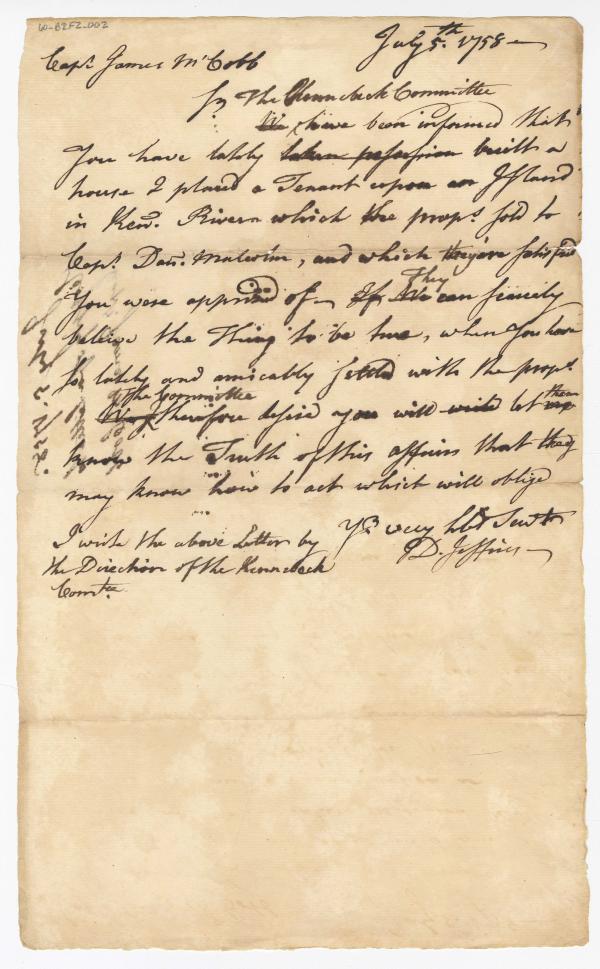 60-B2F2-002
July 5th. 1758
Capt. James McCobb
Sr The Kennebeck Committee
We have been informed that
You have lately taken possession built a
house & placed a Tenant upon an Island
in Keno. River which the props. sold to
Capt. Danl. Malcolm, and which they are satisfied
You were apprised of They
We can scarcely
believe the Thing to be true, when You have
so lately and amicably settled with the props.
The Committee
We therefore desire you will let them
know the Truth of this affair that they
may know how to act which will oblige
Yr very hble Servt
D. Jeffries
I write the above Letter by
the Direction of the Kennebeck
Comtee.